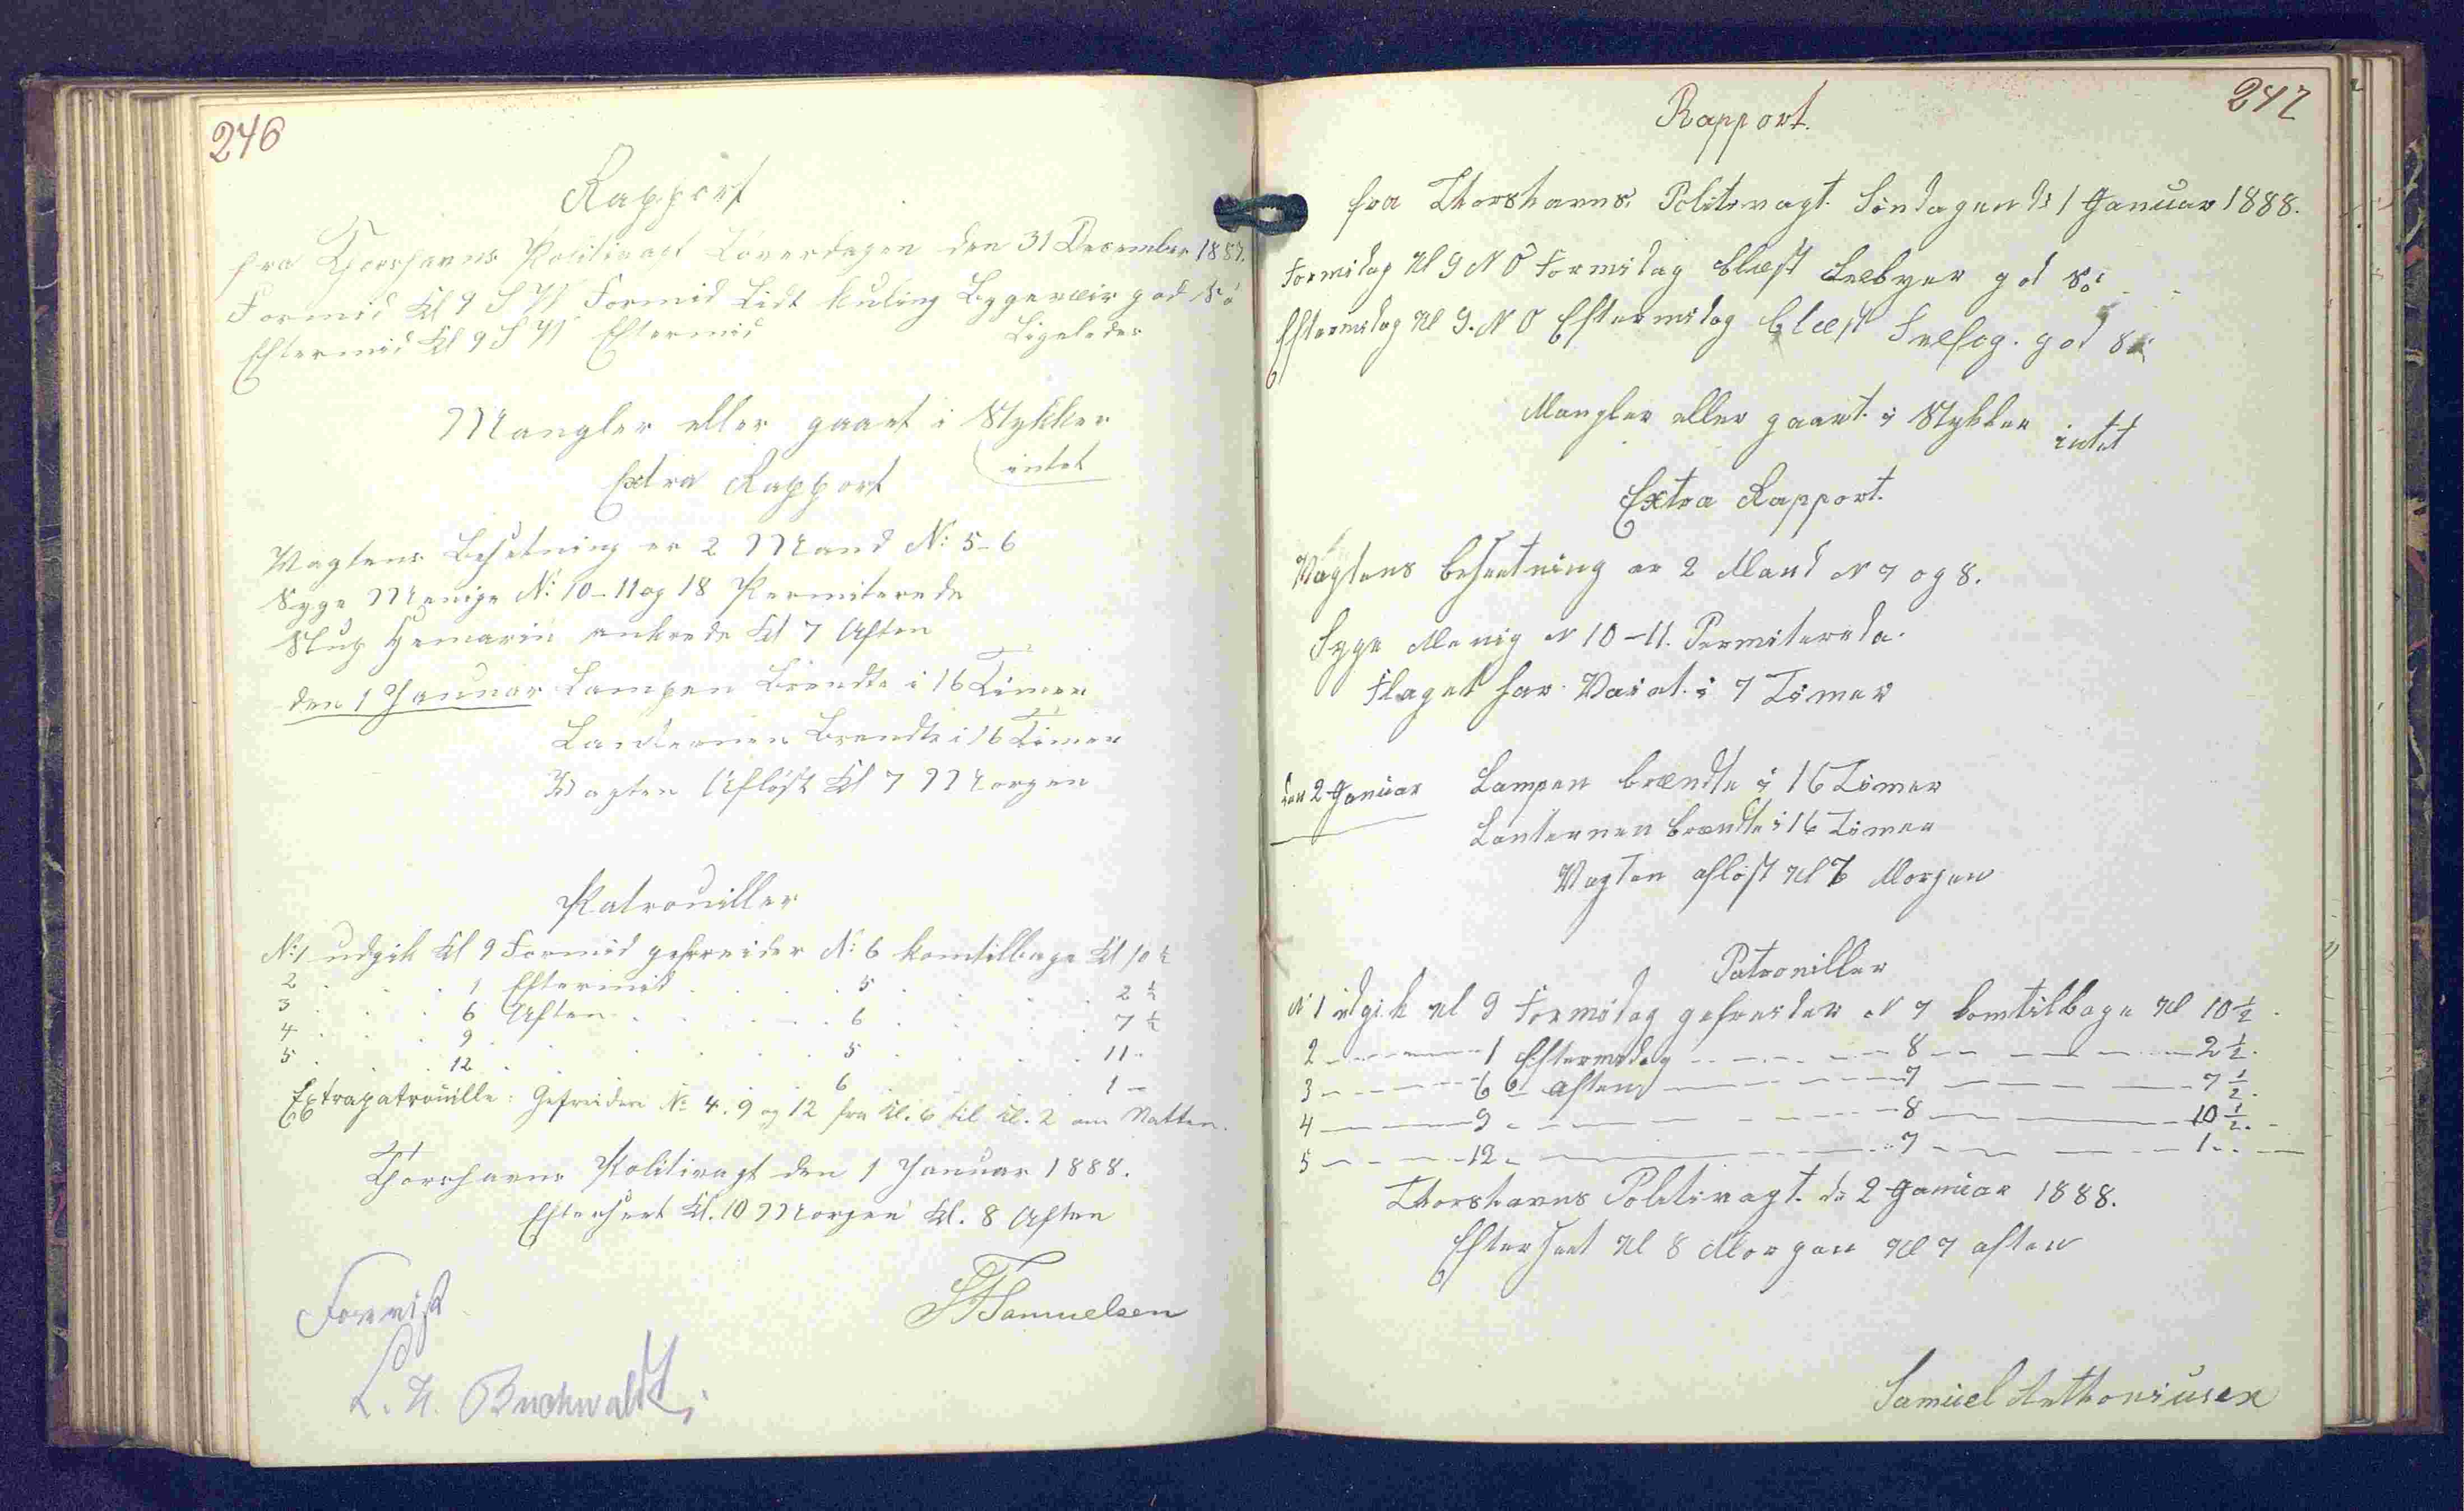 246
Rapport
fra Thorshavns Politivagt Løverdagen den 31 December 1887.
Formid Kl 9 S V Formid Lidt Kuling Bygeveir god Sø
Eftermid Kl 9 S V Eftermid Ligeledes
Mangler eller gaaet i Stykker
intet
Extra Rapport
Vagtens Besetning er 2 Mand N: 5-6
Syge Menige N: 10-11 og 18 Permiterede
Slup ankrede Kl 7 Aften
den 1 Januar Lampen Brendte i 16 Timer
Lanternen Brendte i 16 Timer
Vagten Afløst Kl 7 Morgen
Patrouiller
N:1 udgik Kl 9 Formid gefreider N: 6 komtilbage Kl 10 ½
2 . . . 1 Eftermid . . . 5 . . . 2 ½
3 . . . 6 Aften . . . 6 . . . 7 ½
4 . . . 9 . . . 5 . . . 11 -
5 . . . 12 . . . 6 . . . 1 -
Extrapatrouille: Gefreidere No 4. 9 og 12 fra Kl. 6 til Kl. 2 om Natten.
Thorshavns Politivagt den 1 Januar 1888.
Efterseet Kl. 10 Morgen Kl. 8 Aften
Forevist
Samuelsen
L. N. Buchwaldt.
247
Rapport.
fra Thorshavns. Politivagt. Søndagen d: 1 Januar 1888.
Formidag Kl 9 N O Formidag blæst Snebyer god Sø
Eftermidag Kl 9. N O Eftermidag blæst Snefog. god Sø
Mangler eller gaaet. i Stykker intet
Extra Rapport.
Vagtens besætning er 2 Mand N 7 og 8.
Syge Menig N 10-11. Permiterede.
Flaget har Vaiet. i 7 Timer
den 2 Januar Lampen brændte i 16 Timer
Lanternen brændte i 16 Timer
Vagten afløst Kl 7 Morgen
Patrouiller
N 1 udgik Kl 9 Formidag gefreider N 7 komtilbage Kl 10 ½
2 - - - 1 Eftermidag - - - 8 - - - 2 ½.
3 - - - 6 aften - - - 7 - - - 7 ½.
4 - - - 9 - - - 8 - - - 10 ½.
5 - - - 12 - - - 7 - - - 1 -
Thorshavns Politivagt. d: 2 Januar 1888.
Efterseet Kl 8 Morgen Kl 7 aften
Samuel Anthoniusen